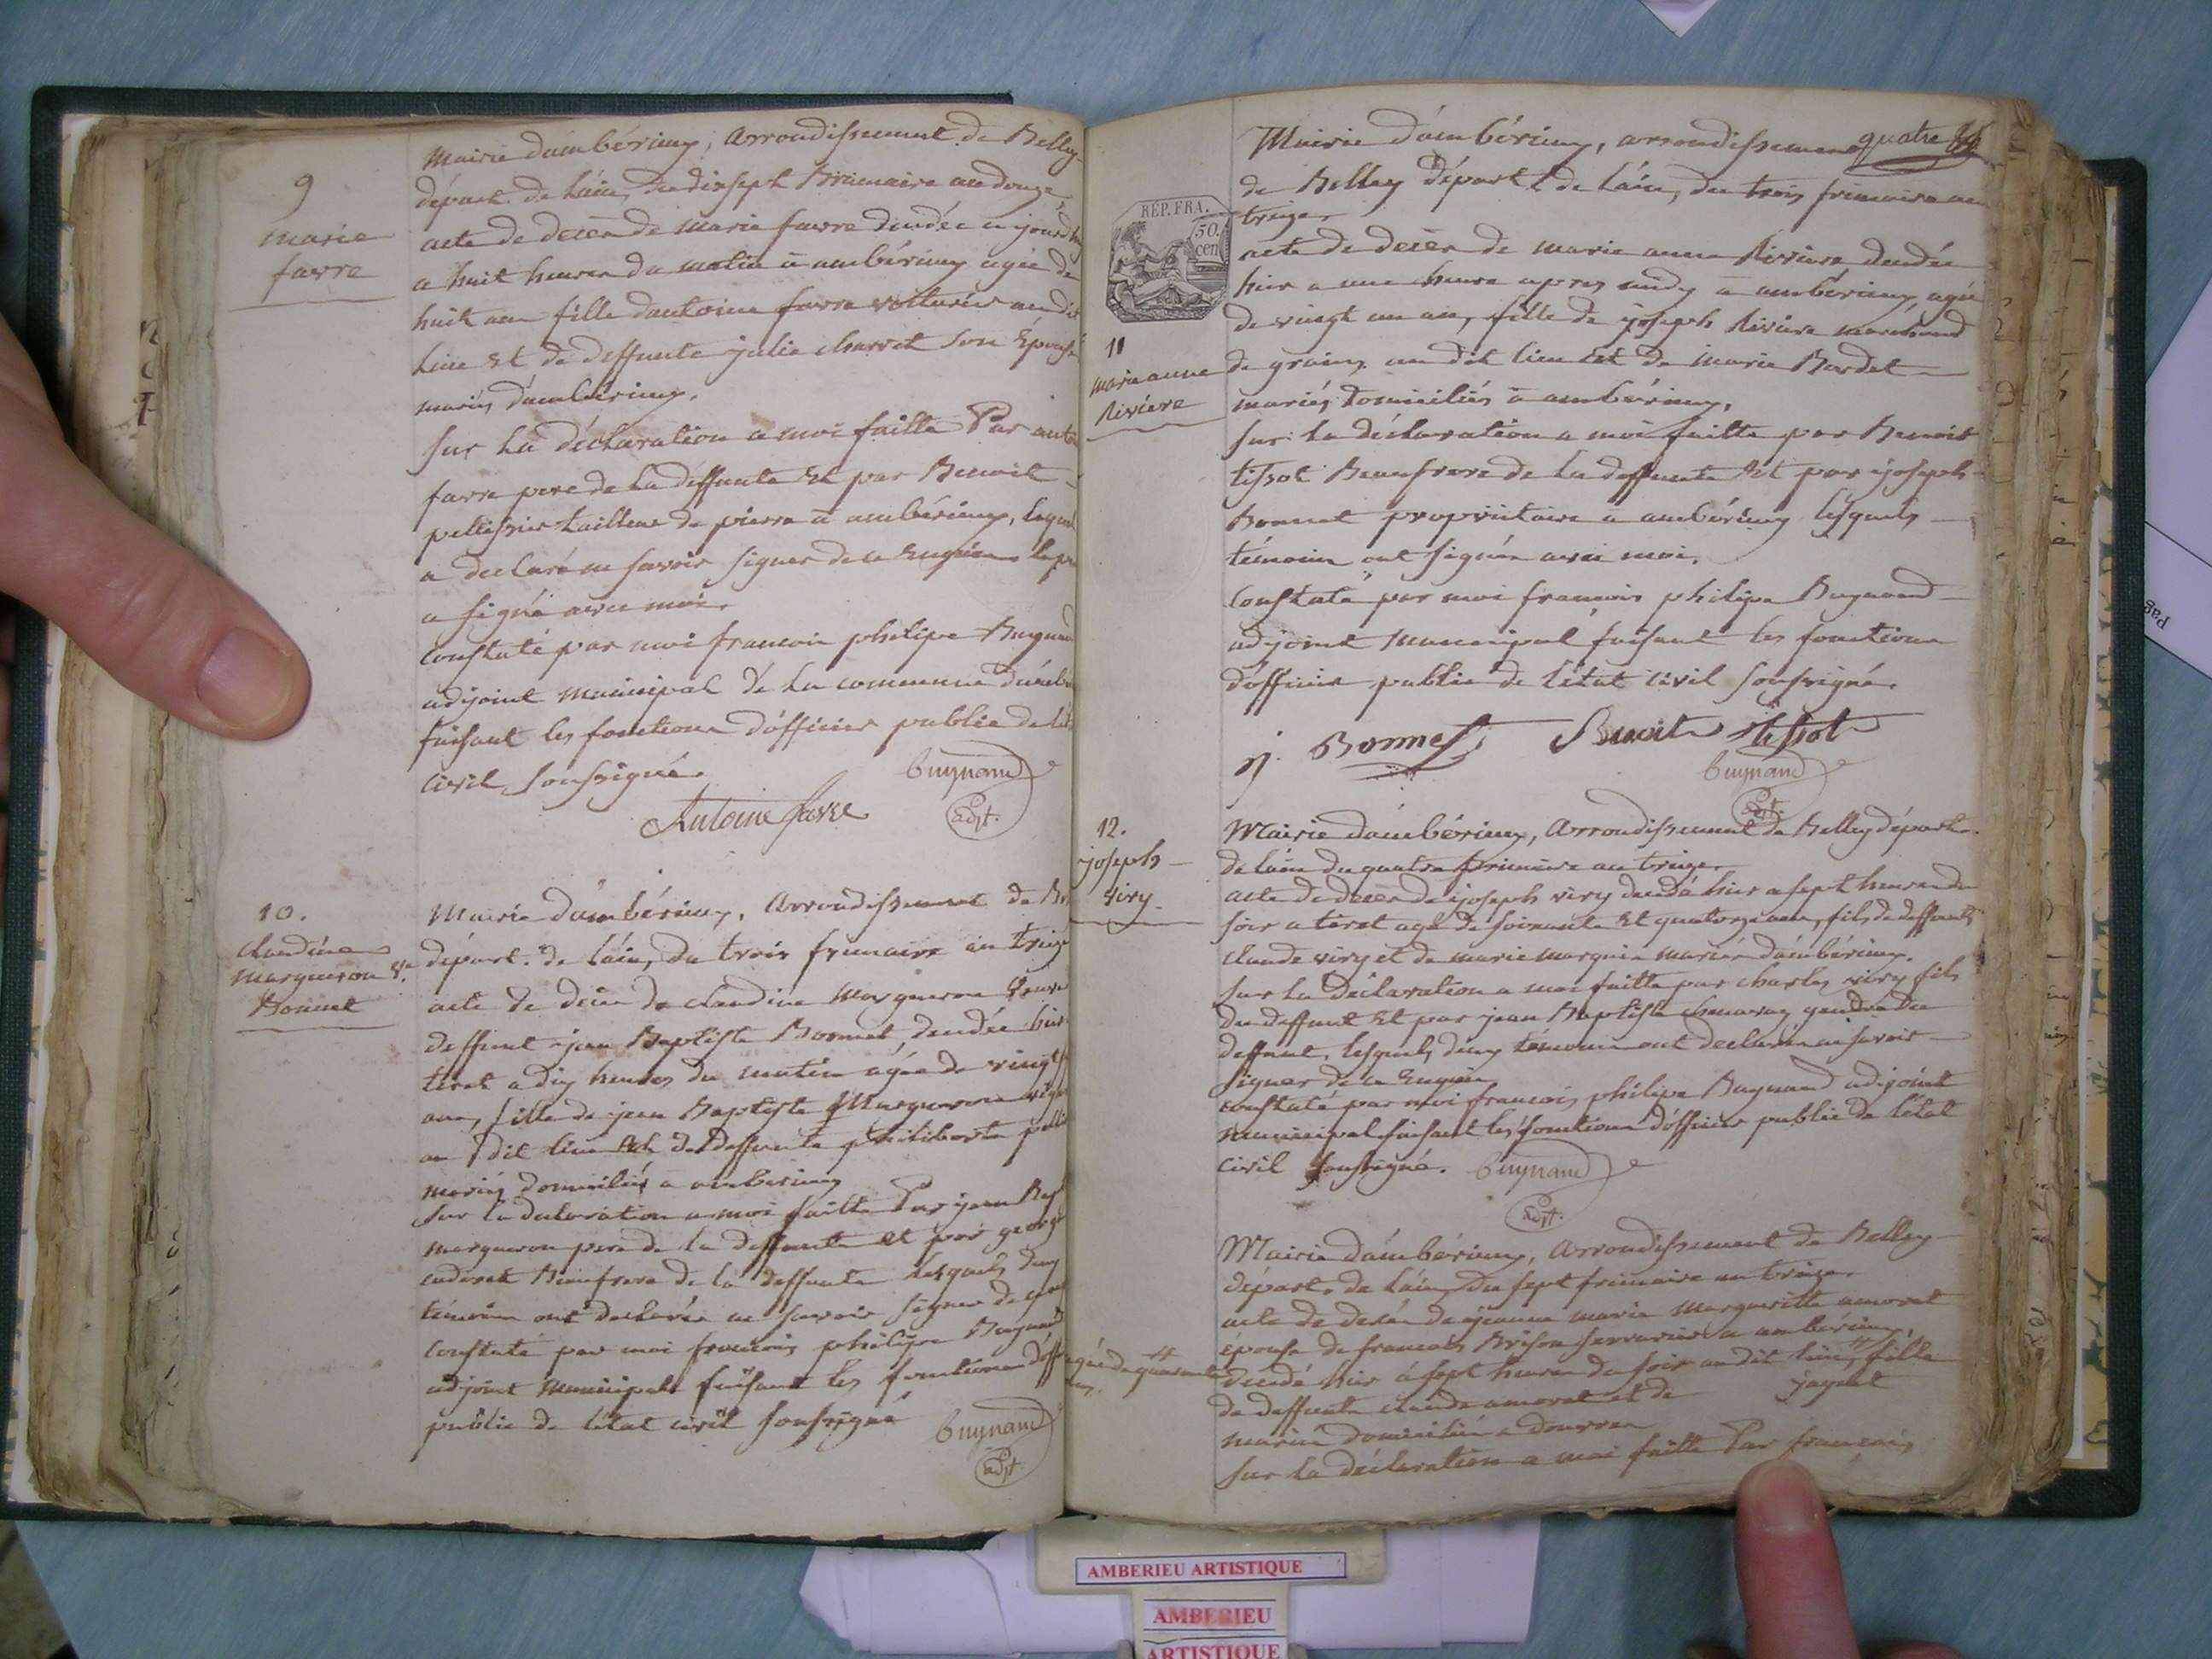 9
marie
favre
Mairie d'ambérieux, arrondissement de Belley
départ. de l'ain, du dixsept Brumaire an
acte de décès de marie favre décédée
a huit heures du matin a ambérieux agée de
huit ans fille d'antoine favre voiturier au dit
lieu Et de deffunte julie charvet son Épouse
mariés d'ambérieux.
Sur la déclaration a moi faitte Par
favre pere de la deffunte Et par Benoit
pellissier tailleur de pierre a ambérieux,
a declaré ne savoir signer de ce Enquis
a signé avec moi.
constaté par moi francois philipe Buynand
adjoint municipal de la commune
faisant les fonctions d'officier public de
civil soussigné.
buynand
adjt.
Antoine favre
10.
claudine
margueron Ve.
Bonnet
Mairie d'ambérieux, arrondissement de
départ. de l'ain, du trois frimaire an treize
acte de décès de claudine margueron veuve
deffunt jean Baptiste Bonnet, décédée hier
tiret a dix heures du matin agée de
ans, fille de jean Baptiste Margueron
au dit lieu Et de deffunte philiberte
mariés domiciliés a ambérieux
sur la declaration a moi faitte Par jean
margueron pere de la deffunte et par george
Beaufrere de la deffunte lesquels deux
témoins ont declarés ne savoir signer de
constaté par moi francois philipe Buynand
adjoint municipal faisant les fonctions
public de l'état civil soussigné
buynand
adjt.
quatre
RÉP. FRA.
50.
cen
11
marie anne
Rivière
Mairie d'ambérieux, arrondissement
de Belley départ. de l'ain, du trois frimaire an
treize.
acte de décès de marie anne Rivière décédée
hier a une heure apres midy a ambérieux, agée
de vingt un an, fille de joseph Rivière marchand
de grains au dit lieu Et de marie Bardet
mariés domiciliés a ambérieux.
sur la déclaration a moi faitte par Benoit
tissot Beaufrere de la deffunte Et par joseph
Bonnet propriétaire a ambérieux lesquels
témoins ont signés avec moi.
Constaté par moi francois philipe Buynand
adjoint municipal faisant les fonctions
d'officier public de l'état civil soussigné.
j. Bonnet Benoit tissot
buynand
adjt.
12.
joseph
viry
Mairie d'ambérieux, arrondissement de Belley départ.
de l'ain du quatre frimaire an treize.
acte de décès de joseph viry décédé hier a sept heures du
soir a tiret agé de soixante Et quatorze ans, fils de deffunts
claude viry et de marie marguin mariés d'ambérieux.
sur la déclaration a moi faitte par charles viry fils
du deffunt Et par jean Baptiste chenavay gendre du
deffunt, lesquels deux témoins ont declarés ne savoir
signer de ce Enquis
constaté par moi francois philipe Buynand adjoint
municipal faisant les fonctions d'officier public de l'état
civil soussigné. buynand
adjt.
Mairie d'ambérieux, arrondissement de Belley
départ. de l'ain, du sept frimaire an treize.
acte de décès de jeanne marie Margueritte amoret
épouse de francois Brison serrurier a ambérieux,
décédé hier à sept heures du soir au dit lieu, fille
agée de quarante
ans.
de deffunts claude amoret et de jayet
mariés domiciliés a douvres
sur la déclaration a moi faitte Par francois
AMBERIEU ARTISTIQUE
AMBERIEU
ARTISTIQUE
Pag